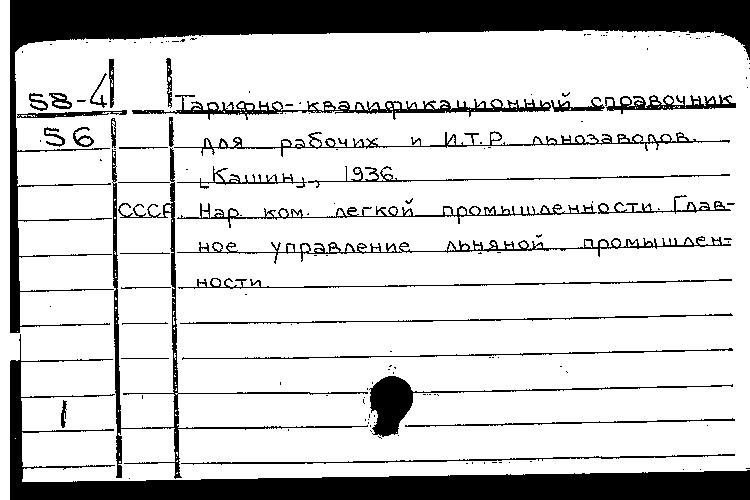 58-4 Тарифно-квалификационный справочник
56 для рабочих и И.Т.Р. льнозаводов.
[Кашин], 1936.
СССР. Нар. ком. легкой промышленности. Глав-
ное управление льняной промышлен-
ности.
1